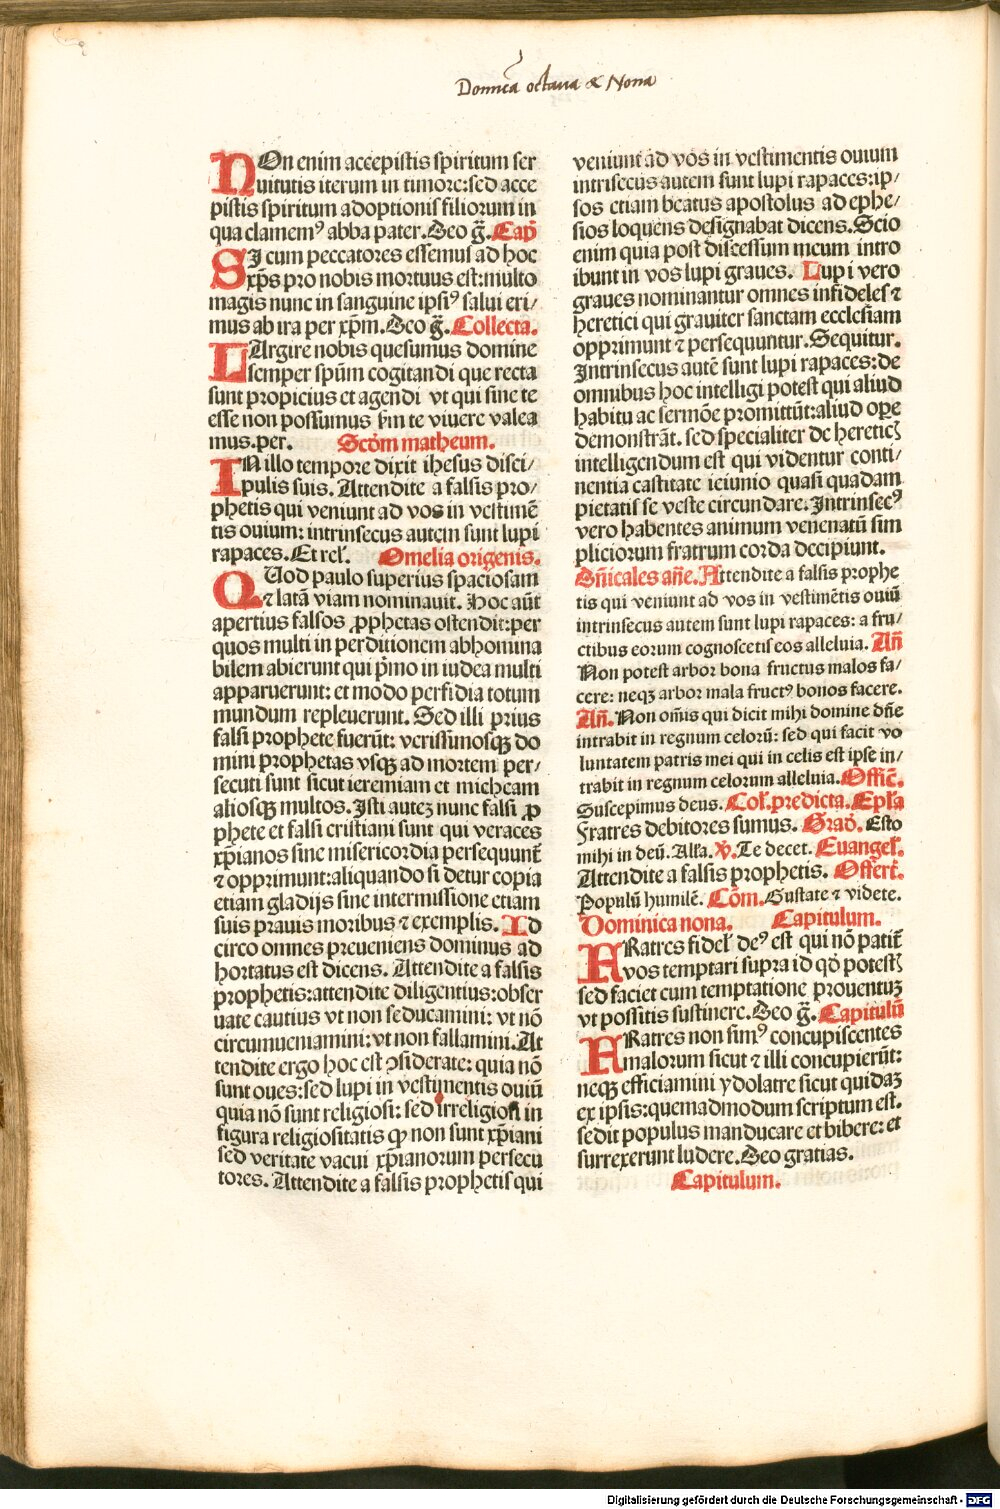 Domīca octaua & Nona
NOn enim accepistis spiritum ser
uitutis iterum in timore:sed acce
pistis spiritum adoptionis filiorum in
qua clamemꝰ abba pater.Deo g̃. Cap̃
SI cum peccatores essemus ad hoc
xp̄s pro nobis mortuus est:multo
magis nunc in sanguine ipsiꝰ salui eri/
mus ab ira per xp̄m.Deo g̃. Collecta.
LArgire nobis quesumus domine
semper spūm cogitandi que recta
sunt propicius et agendi vt qui sine te
esse non possumus s̄m te viuere valea
mus.per. Scōm matheum.
IN illo tempore dixit ihesus disci/
pulis suis. Attendite a falsis pro/
phetis qui veniunt ad vos in vestimē
tis ouium: intrinsecus autem sunt lupi
rapaces.Et rel̃. Omelia origenis.
QUod paulo superius spaciosam
⁊ latā viam nominauit. Hoc aūt
apertius falsos ꝓphetas ostendit:per
quos multi in perditionem abhomina
bilem abierunt qui p̄mo in iudea multi
apparuerunt: et modo perfidia totum
mundum repleuerunt. Sed illi prius
falsi prophete fuerūt: verissimosqꝫ do
mini prophetas vsqꝫ ad mortem per/
secuti sunt sicut ieremiam et micheam
aliosqꝫ multos. Isti auteꝫ nunc falsi ꝓ
phete et falsi cristiani sunt qui veraces
xp̄ianos sine misericordia persequunt̄
⁊ opprimunt:aliquando si detur copia
etiam gladijs sine intermissione etiam
suis prauis moribus ⁊ exemplis. Id
circo omnes preueniens dominus ad
hortatus est dicens. Attendite a falsis
prophetis:attendite diligentius:obser
uate cautius vt non seducamini: vt nō
circumueniamini:vt non fallamini.At
tendite ergo hoc est ꝯsiderate: quia nō
sunt oues:sed lupi in vestimentis ouiū
quia nō sunt religiosi: sed irreligiosi in
figura religiositatis ꝙ non sunt xp̄iani
sed veritate vacui xp̄ianorum persecu
tores. Attendite a falsis prophetis qui
veniunt ad vos in vestimentis ouium
intrisecus autem sunt lupi rapaces:ip/
sos etiam beatus apostolus ad ephe/
sios loquens designabat dicens.Scio
enim quia post discessum meum intro
ibunt in vos lupi graues. Lupi vero
graues nominantur omnes infideles ⁊
heretici qui grauiter sanctam ecclesiam
opprimunt ⁊ persequuntur.Sequitur.
Intrinsecus autē sunt lupi rapaces:de
omnibus hoc intelligi potest qui aliud
habitu ac sermōe promittūt:aliud oꝑe
demonstrāt. sed specialiter de hereticꝭ
intelligendum est qui videntur conti/
nentia castitate ieiunio quasi quadam
pietatis se veste circundare.Intrinsecꝰ
vero habentes animum venenatū sim
pliciorum fratrum corda decipiunt.
Dñicales añe. Attendite a falsis prophe
tis qui veniunt ad vos in vestimētis ouiū
intrinsecus autem sunt lupi rapaces: a fru/
ctibus eorum cognoscetis eos alleluia. Añ
Non potest arbor bona fructus malos fa/
cere: neqꝫ arbor mala fructꝰ bonos facere.
Añ. Non om̄is qui dicit mihi domine dñe
intrabit in regnum celorū: sed qui facit vo
luntatem patris mei qui in celis est ipse in/
trabit in regnum celorum alleluia. Offic̃.
Suscepimus deus. Col̃.predicta. Ep̄la
Fratres debitores sumus. Grad̃. Esto
mihi in deū. All̃a. ℣. Te decet. Euangel̃.
Attendite a falsis prophetis. Offert̃.
Populū humilē. Cōm. Gustate ⁊ videte.
Dominica nona. Capitulum.
FRatres fidel̃ deꝰ est qui nō patit̄
vos temptari supra id qd̄ potestꝭ
sed faciet cum temptatione prouentuꝫ
vt possitis sustinere.Deo g̃. Capitulū
FRatres non simꝰ concupiscentes
malorum sicut ⁊ illi concupierūt:
neqꝫ efficiamini ydolatre sicut quidaꝫ
ex ipsis:quemadmodum scriptum est.
sedit populus manducare et bibere: et
surrexerunt ludere.Deo gratias.
Capitulum.
Digitalisierung gefördert durch die Deutsche Forschungsgemeinschaft - DFG